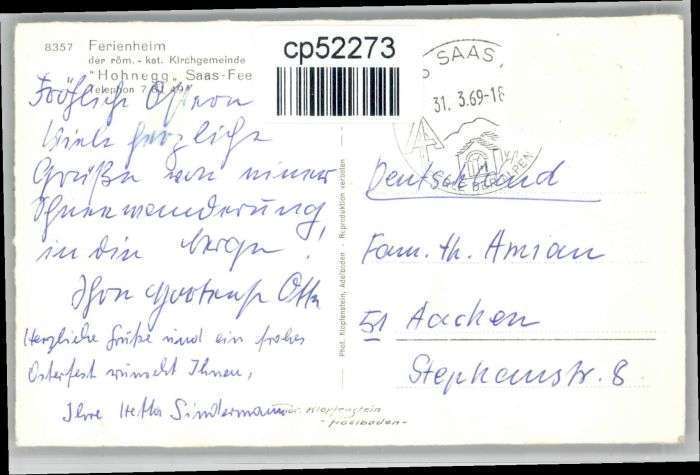 8357 Ferienheim
der röm. - kat. Kirchgemeinde
"Hohnegg" Saas-Fee
Telephon 7
cp52273
SAAS
31. 3.69-18
Fröhliche Ostern
Viele herzliche
Grüße von einer
in die Berge!
Otto
Herzliche Grüße und ein frohes
Osterfest wünscht Ihnen,
Ihre Hetta Sindermann
Phot. Klopfenstein, Adelboden - Reproduktion verboten
Deutschland
Fam. Th. Amian
51 Aachen
Stephanstr. 8
Klopfenstein
-Adelboden-